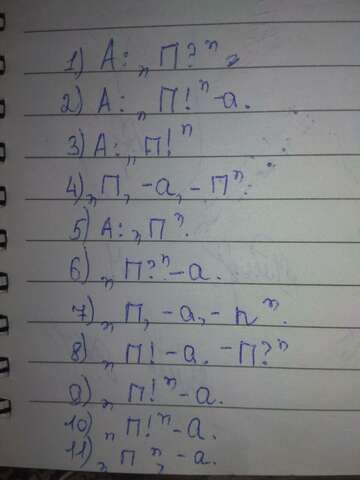 1) А: „П?“,
2) А: „П!“ -а.
3) А: „П!“
4) „П, -а, - П“.
5) А: „П“.
6) „П?“ -а.
7) „П, -а, - п“.
8) „П! -а. -П?“
9) „П!“ -а.
10) „П!“ -а.
11) „П“, -а.